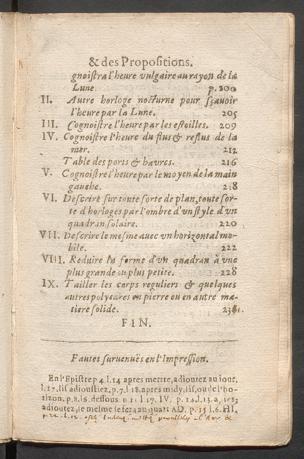 & des Propositions.
gnoistra l'heure vulgaire au rayon de la
Lune. p. 200
II. Autre horloge nocturne pour sçauoir
l'heure par la Lune. 205
III. Cognoistre l'heure par les estoilles. 209
IV. Cognoistre l'heure du flus & reflus de la
mer. 212
Table des ports & havres. 216
V. Cognoistre l'heure par le moyen de la main
gauche. 218
VI. Descrire sur toute sorte de plan, toute sor-
te d'horloges par l'ombre d'vn style d'vn
quadran solaire. 220
VII. Descrire le mesme avec vn horizontal mo-
bile. 222
VIII. Reduire la forme d'vn quadran à vne
plus grande ou plus petite. 228
IX. Tailler les corps reguliers & quelques
autres polyedres en pierre ou en autre ma-
tiere solide. 231.
FIN.
Fautes suruenuës en l'Impression.
En l'Epistre p. 4. l. 14 apres mettre, adioutez au iour,
l. 17, ils adioustiez, p. 7. l. 18. apres midy, ils, ou de l'ho-
rizon, p. 8. ls. dessous. l. 17. IV. p.
adioutez, le mesme se fera au quati AD. p. 35 l. 6. HI,